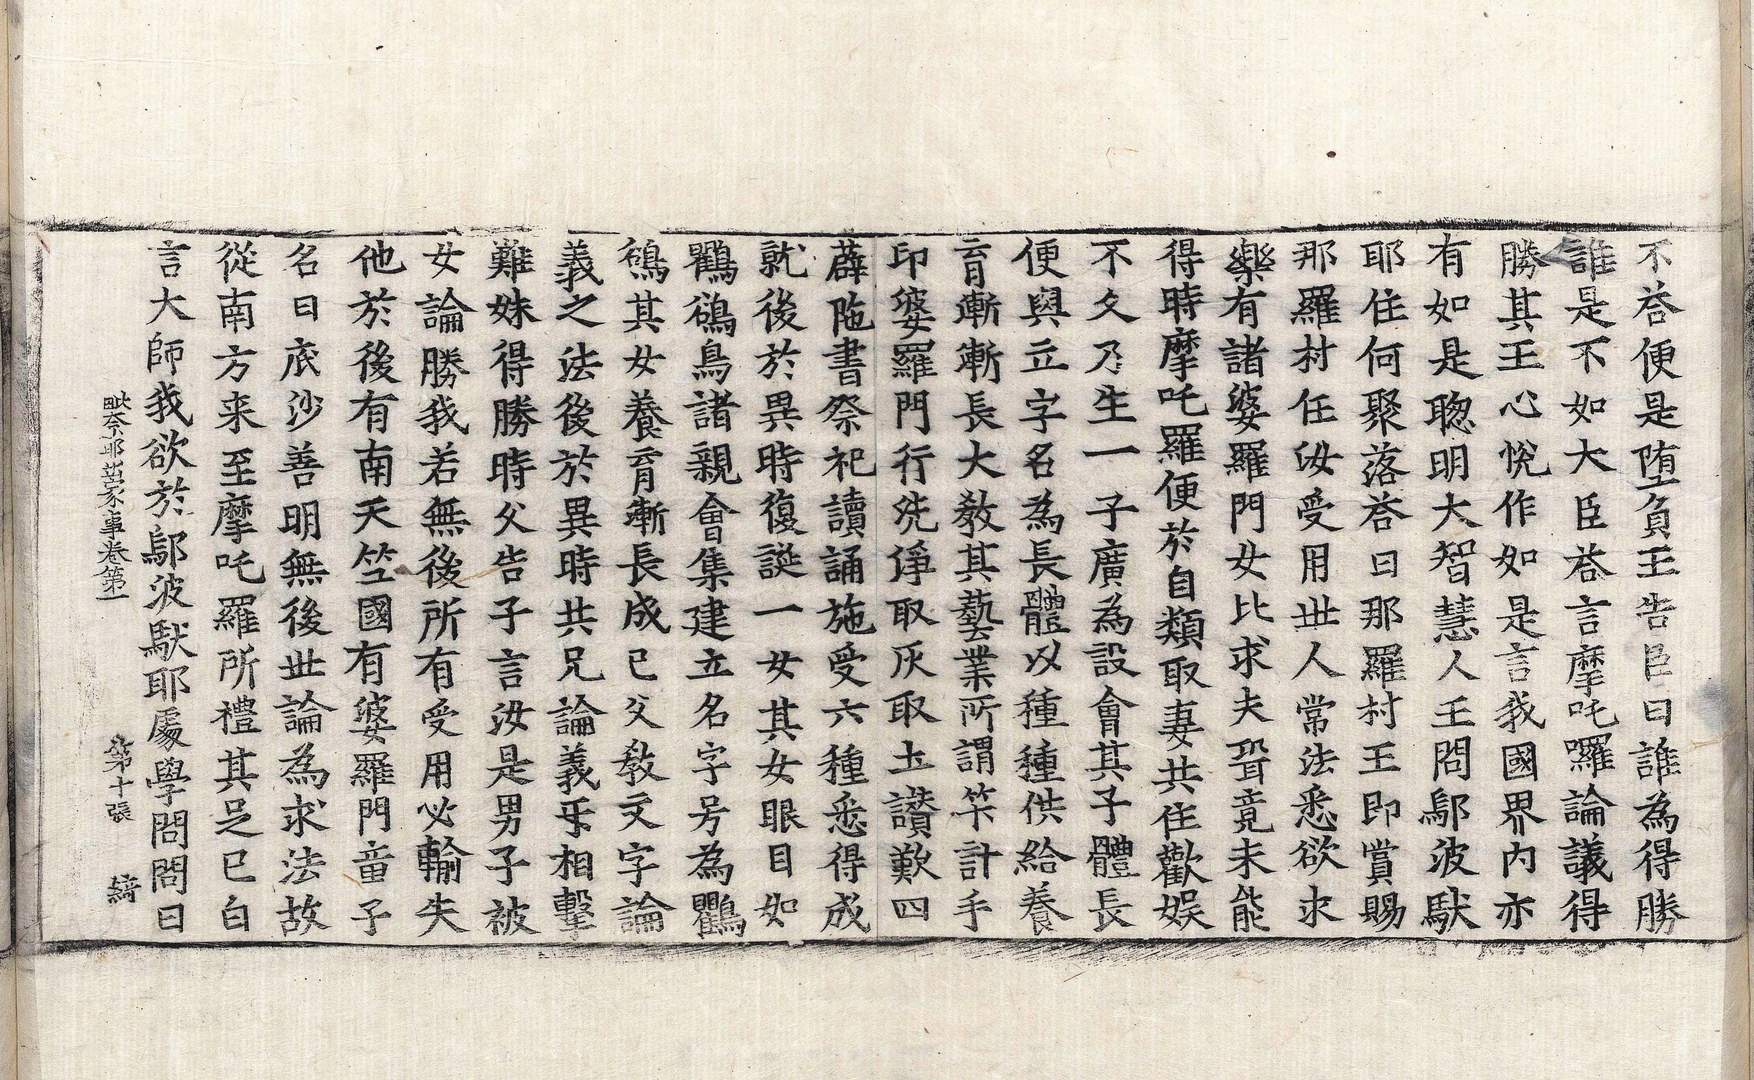 不荅便是堕負王告臣曰誰為得勝
誰是不如大臣荅言摩吒囉論議得
勝其王心恱作如是言我國界内亦
有如是聡明大智慧人王問鄔波馱
耶住何聚落荅曰那羅村王即賞賜
那羅村任汝受用丗人常法悉欲求
樂有諸婆羅門女比求夫聟竟未能
得時摩吒羅便於自類取妻共住歡娱
不久乃生一子廣為設會其子體長
便與立字名為長體以種種供給養
育漸漸長大教其藝業所謂筭計手
印婆羅門行洗淨取灰取土讃歎四
薜陁書祭祀讀誦施受六種悉得成
就後於異時復誕一女其女眼目如
鸜鵒鳥諸親會集建立名字号為鸜
鵒其女養育漸長成已父教文字論
義之法後於異時共兄論義互相擊
難妹得勝時父告子言汝是男子被
女論勝我若無後所有受用必輸失
他於後有南天竺國有婆羅門童子
名曰底沙善明無後丗論為求法故
從南方来至摩吒羅所禮其足已白
言大師我欲於鄔波馱耶處學問問曰
毗奈耶出家事卷第一 第十張 綺